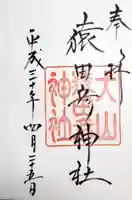 奉拝
猿田彦神社
平成三十年四月二十五日
大山
神社